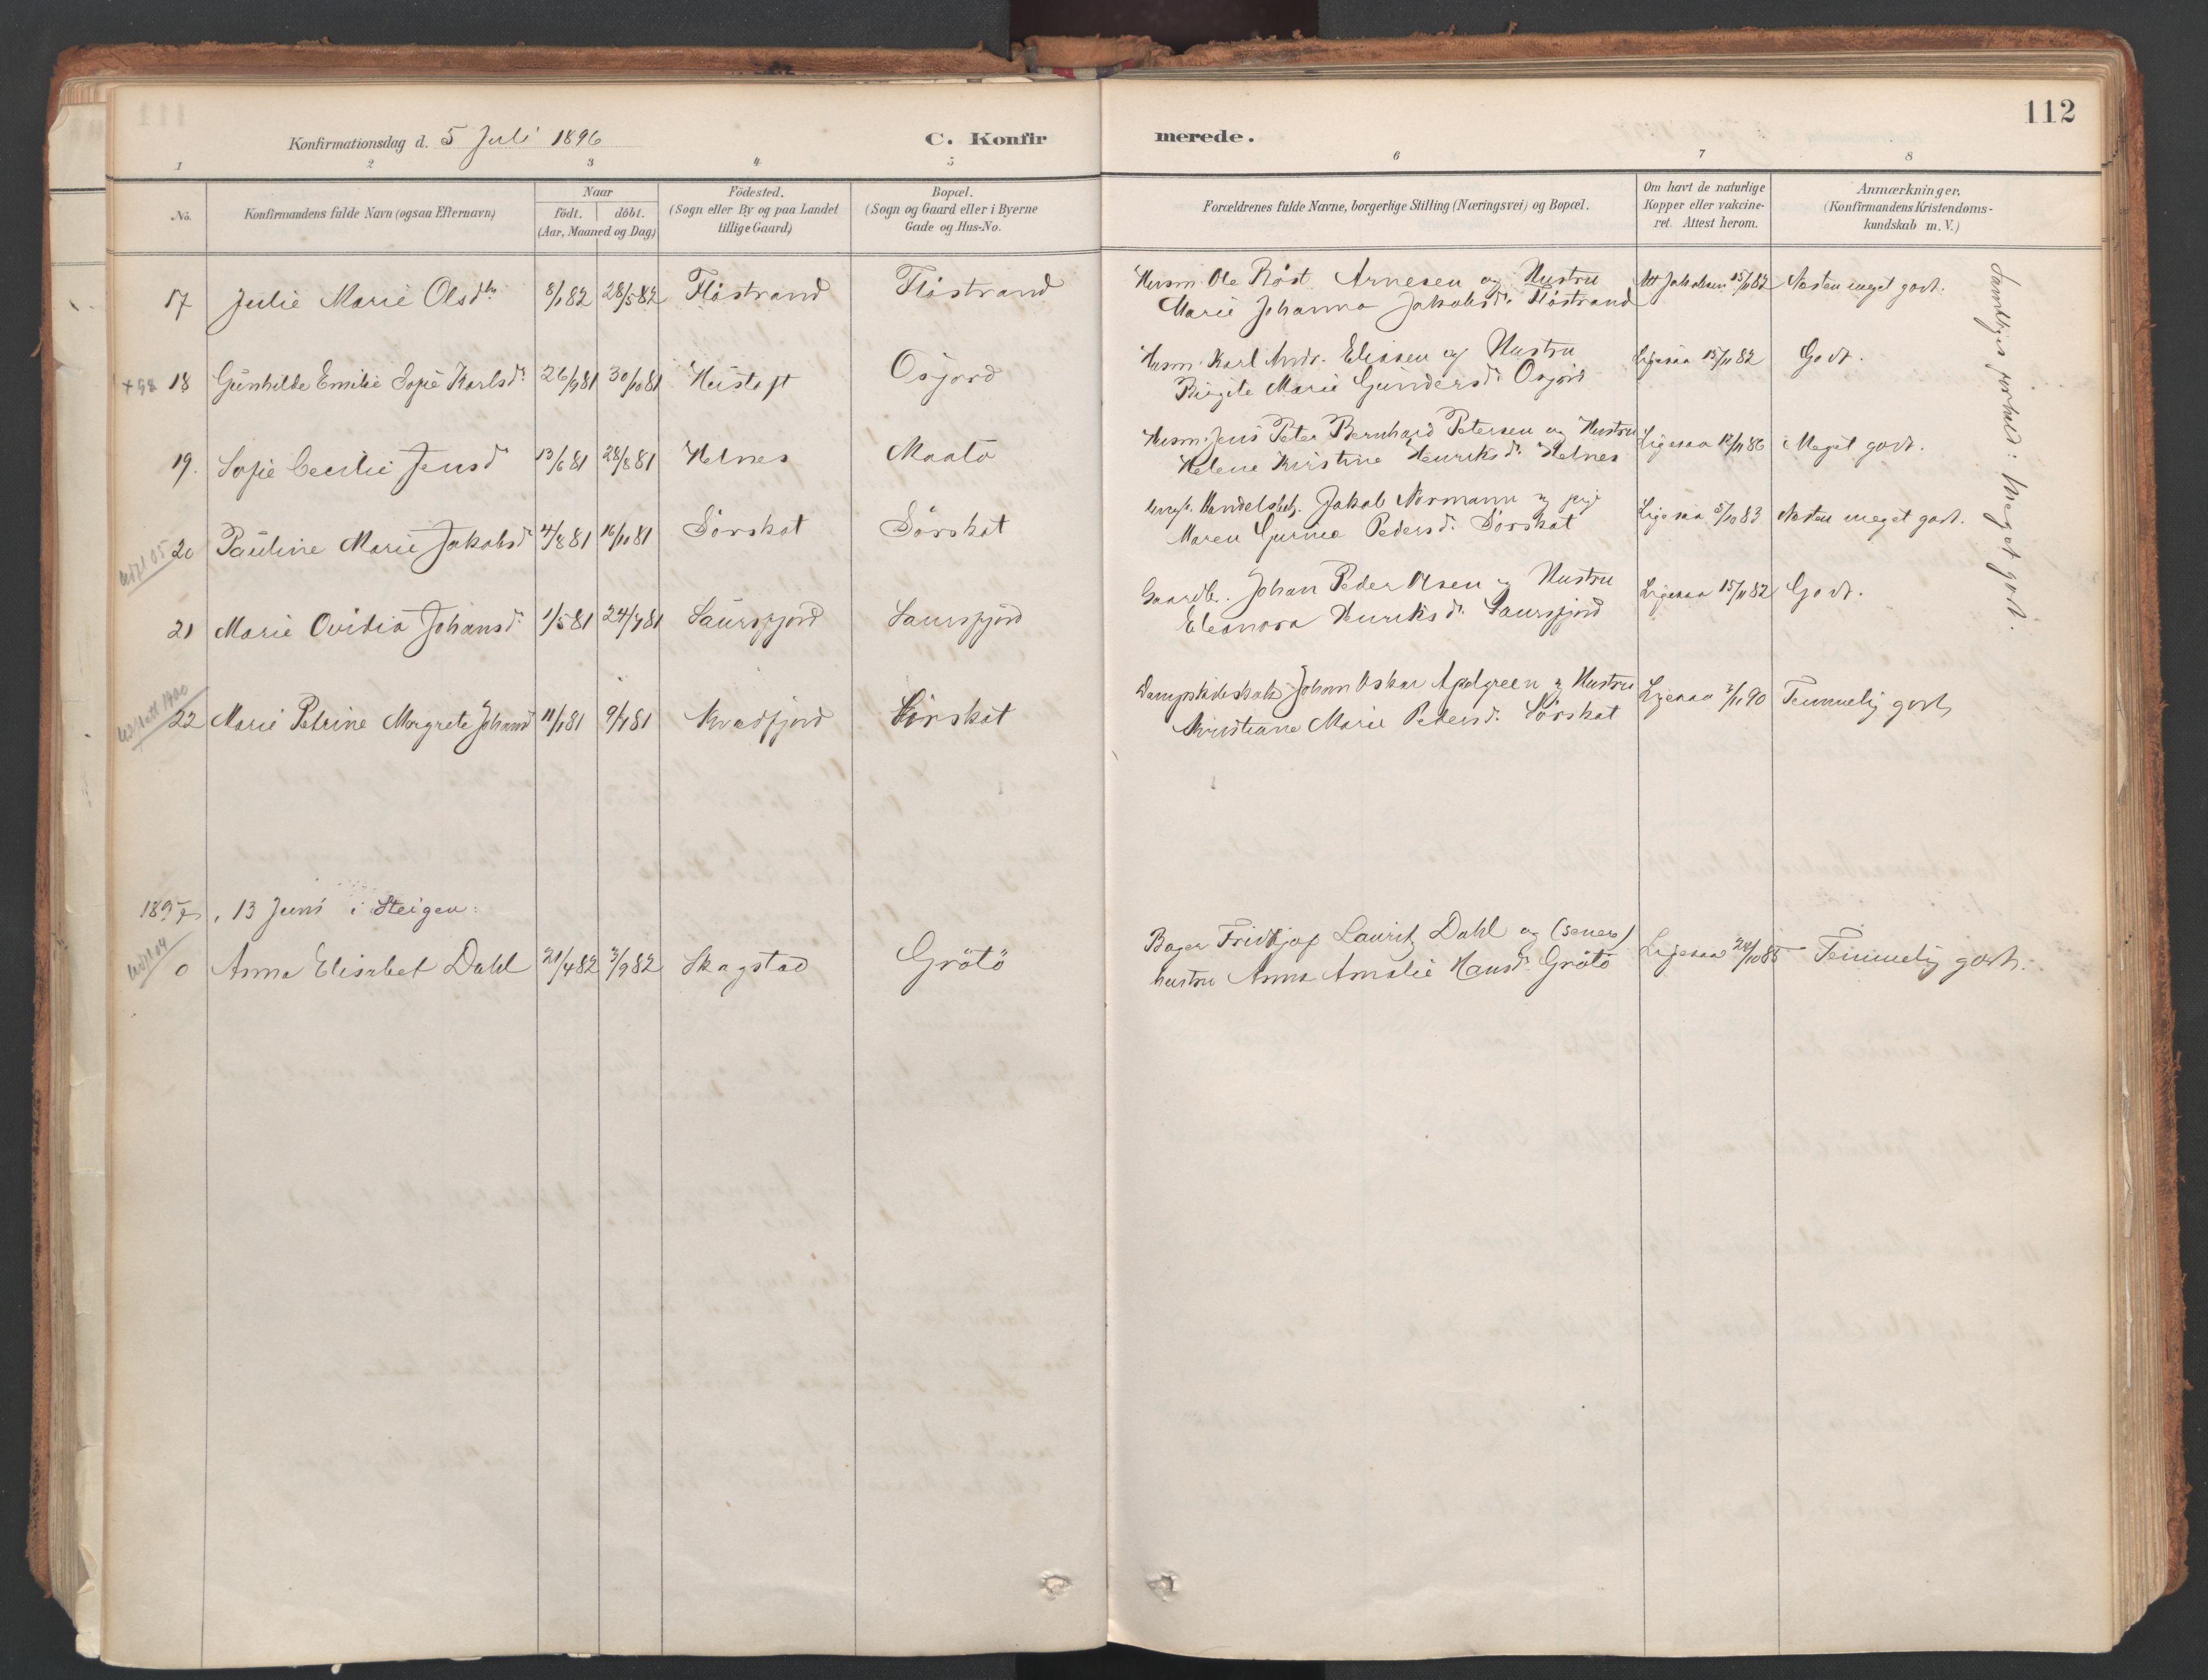 112
Konfirmationsdag d. 5 Juli 1896
C. Konfirmerede.
1 2 3 4 5 6 7 8
No.
Konfirmandens fulde Navn (ogsaa Efternavn)
Naar
födt. döbt.
(Aar, Maaned og Dag)
Födested.
(Sogn eller By og paa Landet
tillige Gaard)
Bopæl.
(Sogn og Gaard eller i Byerne
Gade og Hus-No.
Forældrenes fulde Navne, borgerlige Stilling (Næringsvei) og Bopæl.
Om havt de naturlige
Kopper eller vakcine-
ret. Attest herom.
Anmærkninger.
(Konfirmandens Kristendoms-
kundskab m. V.)
17 Julie Marie Olsdtr 8/1 82 28/5 82 Flöstrand Flöstrand
Husm. Ole Röst Arnesen og Hustru
Marie Johanna Jakobsdr Flöstrand
Att Jakobsen 15/11 82 Næsten meget godt.
+98 18 Gunhilde Emilie Sofie Karlsdr 26/9 81 30/10 81 Heistoft Osjord
Husm. Karl Andr. Elissen og Hustru
Birgite Marie Gundersdr Osjord
Ligesaa 15/11 82 Godt.
19. Sofie Cecilie Jensd 13/6 81 28/8 81 Helnes Maatö
Husm. Jens Peter Bernhard Petersen og Hustru
Helene Kristine Henriksdr Helnes
Ligesaa 12/11 86 Meget godt.
20 Pauline Marie Jakobsdr 4/8 81 16/11 81 Sörskot Sörskot
Handelsbetj. Jakob Normann og pige
Maren Gurine Pedersdr Sörskot
Ligesaa 5/10 83 Næsten meget godt.
21 Marie Ovidia Johansdr 1/5 81 24/7 81 Laursfjord Laursfjord
Gaardbr. Johan Peder Olsen og Hustru
Eleonora Henriksdr Laursfjord
Ligesaa 15/11 82 Godt.
22 Marie Petrine Margrete Johansd 11/1 81 9/4 81 Kvædfjord Sörskot
Johan Oskar Apelgreen og Hustru
Kristiane Marie Pedersdr Sörskot
Ligesaa 2/11 90 Temmelig godt
Samtliges forhold: Meget godt.
1897, 13 Juni i Steigen:
0 Anna Elisabet Dahl 21/4 82 3/9 82 Skagstad Grötö
Bager Fridtjof Lauritz Dahl og (senere)
hustru Anna Amalie Hansdr Grötö
Ligesaa 24/10 85 Temmelig godt.